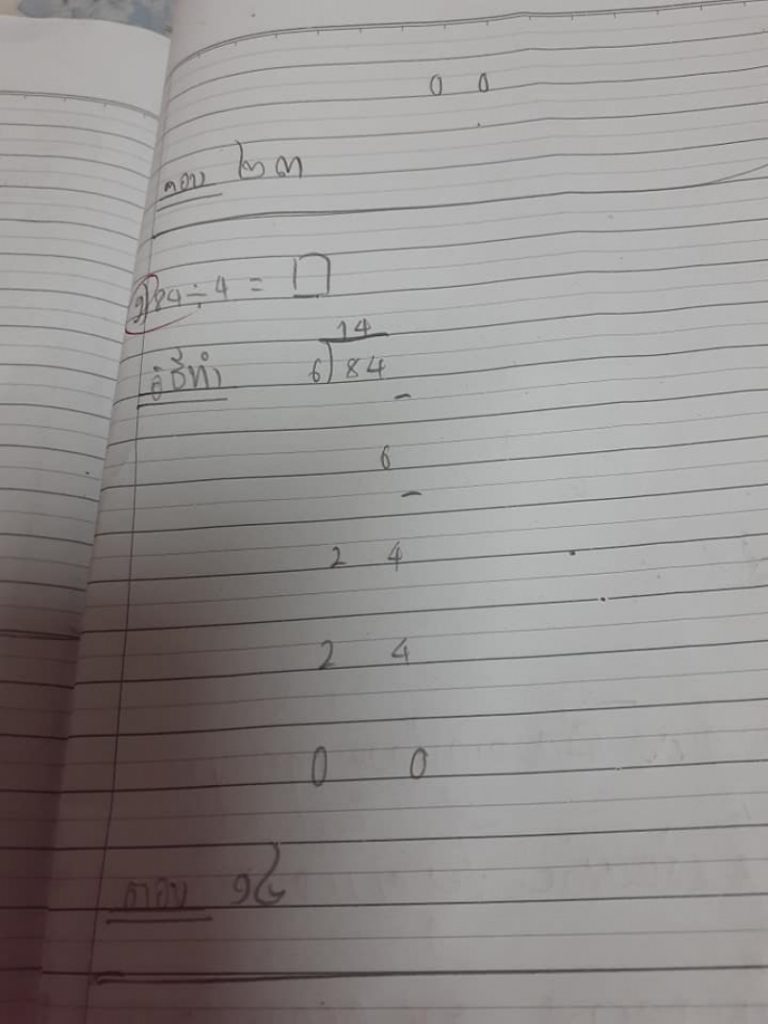 0 0
ตอบ ๒๓
9) 84 ÷ 4 = □
วิธีทำ 14
6) 84
-
6
-
2 4
2 4
0 0
ตอบ ๑๔